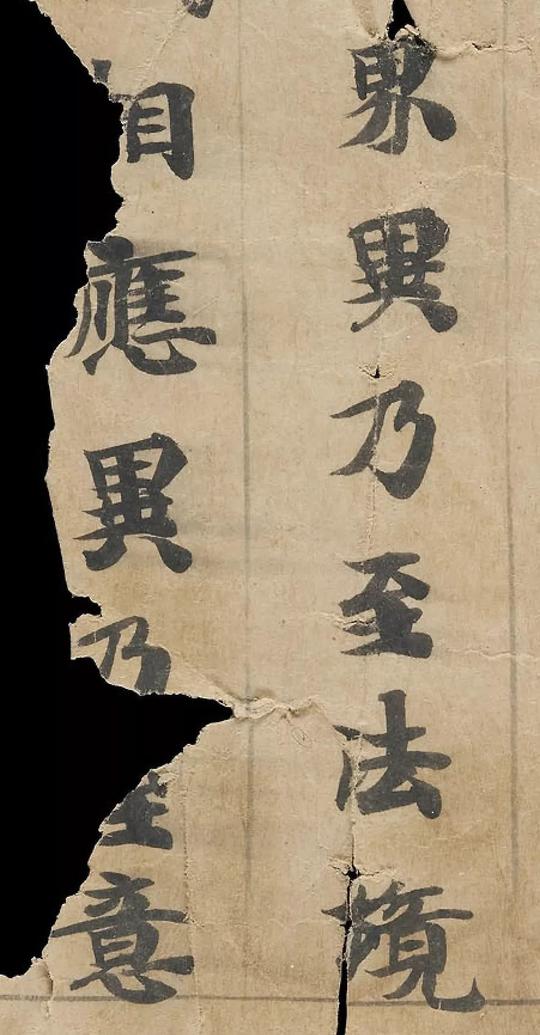 界異乃至法境
相應異乃至意